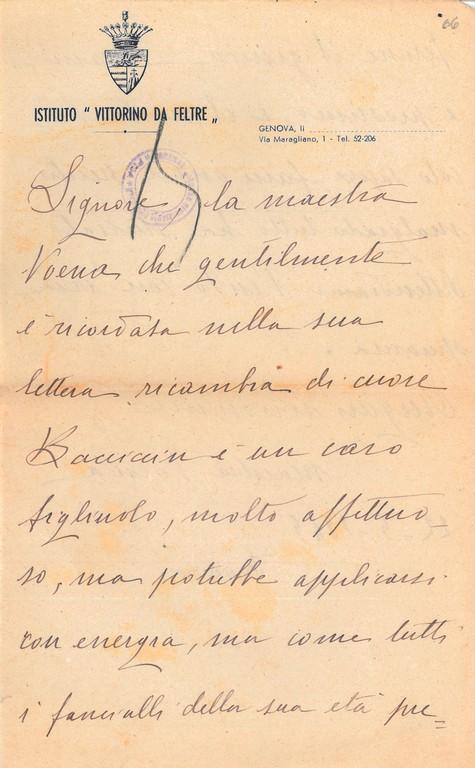 66
ISTITUTO " VITTORINO DA FELTRE „
GENOVA, li
Via Maragliano, 1 - Tel. 52-206
Signore, la maestra
Voena che gentilmente
è ricordata nella sua
lettera ricambia di cuore
Bacicin è un caro
figliuolo, molto affettuo=
so, ma potrebbe applicarsi
con energia, ma come tutti
i fanciulli della sua età pre=